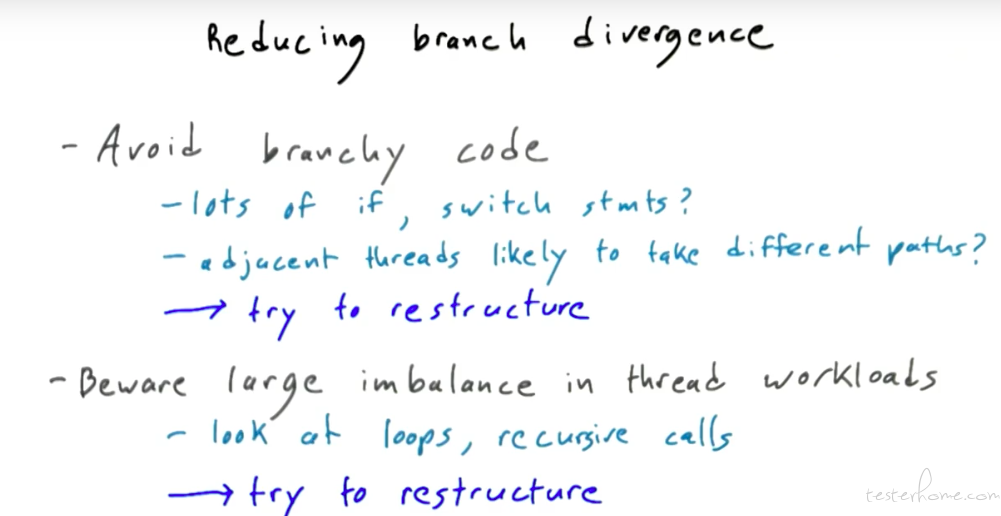 Reducing branch divergence
- Avoid branchy code
- lots of if, switch stmts?
- adjacent threads likely to take different paths?
→ try to restructure
- Beware large imbalance in thread workloads
- look at loops, recursive calls
→ try to restructure
testerhome.com